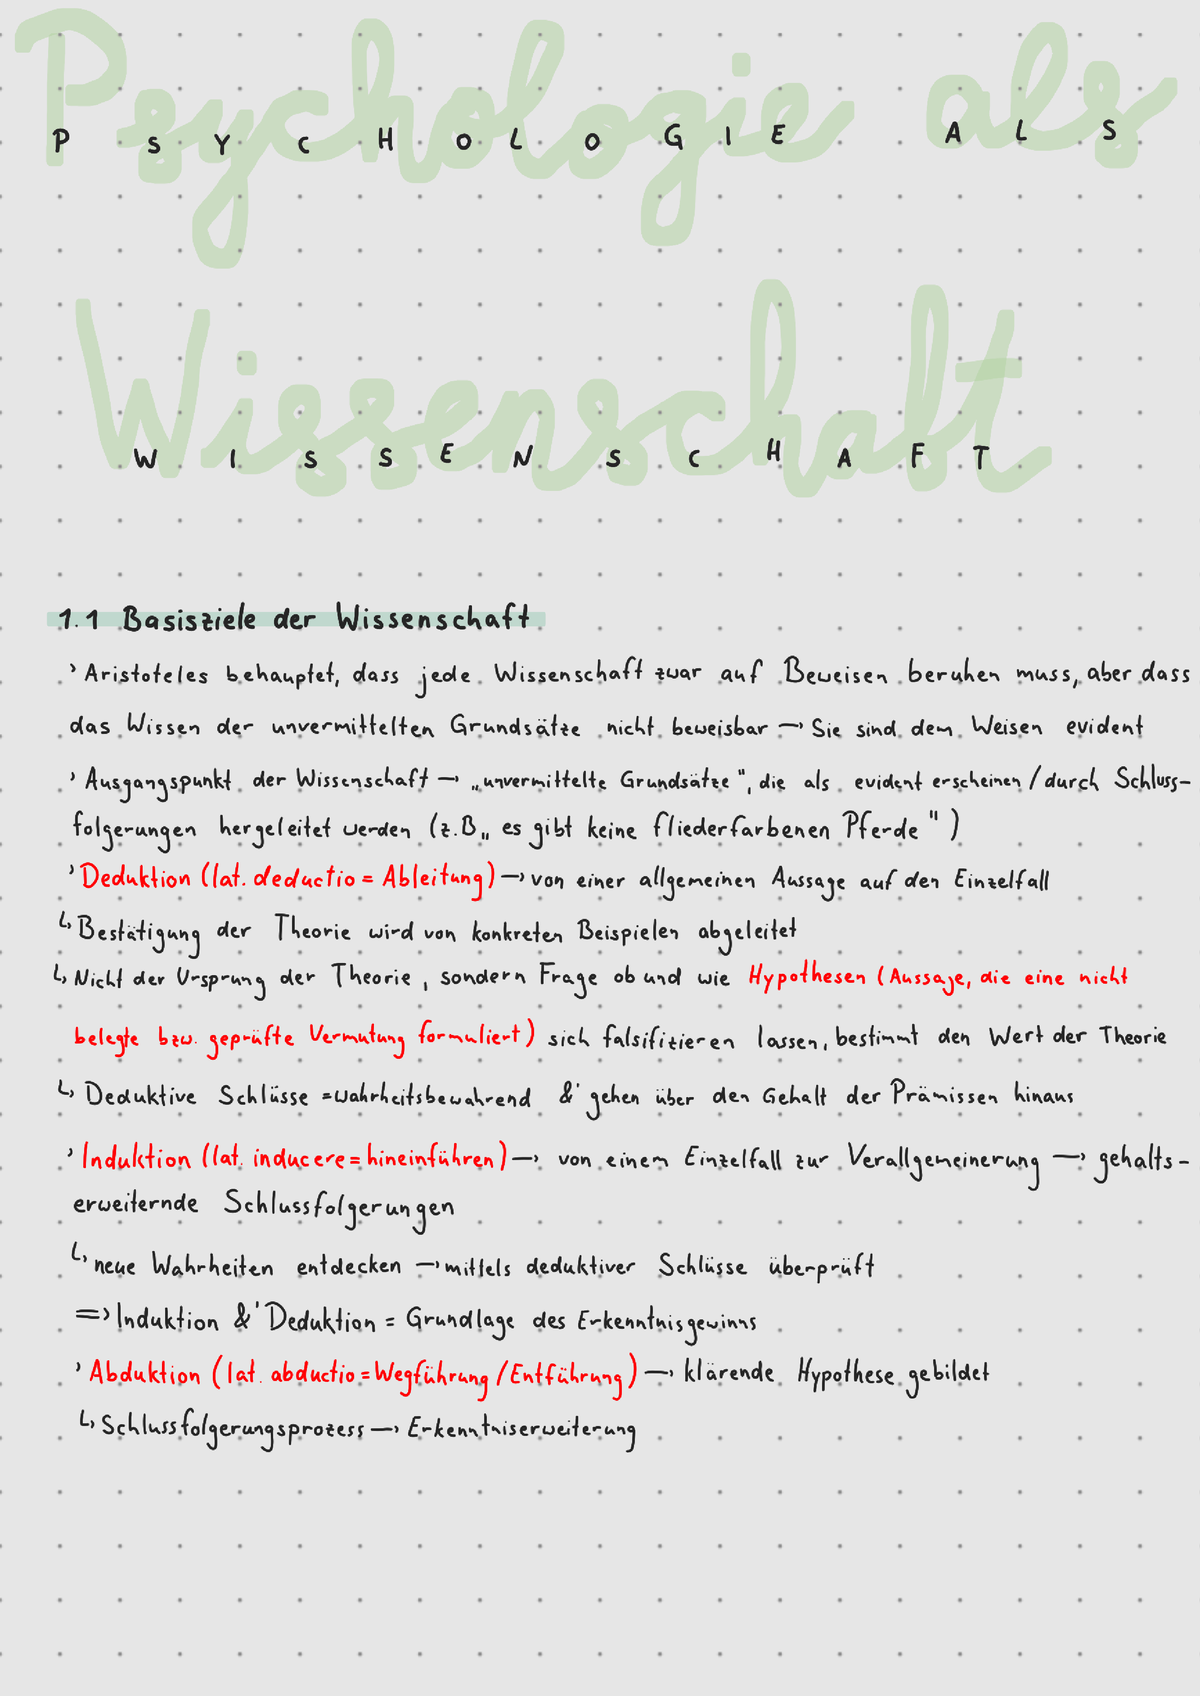 Psychologie als
PSYCHOLOGIE ALS
Wissenschaft
WISSENSCHAFT
1.1 Basisziele der Wissenschaft
' Aristoteles behauptet, dass jede Wissenschaft zwar auf Beweisen beruhen muss, aber dass
das Wissen der unvermittelten Grundsätze nicht beweisbar → Sie sind dem Weisen evident
' Ausgangspunkt der Wissenschaft → „unvermittelte Grundsätze", die als evident erscheinen / durch Schluss-
folgerungen hergeleitet werden (z.B „ es gibt keine fliederfarbenen Pferde " )
' Deduktion (lat. deductio = Ableitung) → von einer allgemeinen Aussage auf den Einzelfall
↳ Bestätigung der Theorie wird von konkreten Beispielen abgeleitet
↳ Nicht der Ursprung der Theorie, sondern Frage ob und wie Hypothesen (Aussage, die eine nicht
belegte bzw. geprüfte Vermutung formuliert) sich falsifizieren lassen, bestimmt den Wert der Theorie
↳ Deduktive Schlüsse = wahrheitsbewahrend & gehen über den Gehalt der Prämissen hinaus
' Induktion (lat. inducere = hineinführen) → von einem Einzelfall zur Verallgemeinerung → gehalts-
erweiternde Schlussfolgerungen
↳ neue Wahrheiten entdecken → mittels deduktiver Schlüsse überprüft
=> Induktion & Deduktion = Grundlage des Erkenntnisgewinns
' Abduktion (lat. abductio = Wegführung / Entführung) → klärende Hypothese gebildet
↳ Schlussfolgerungsprozess → Erkenntniserweiterung